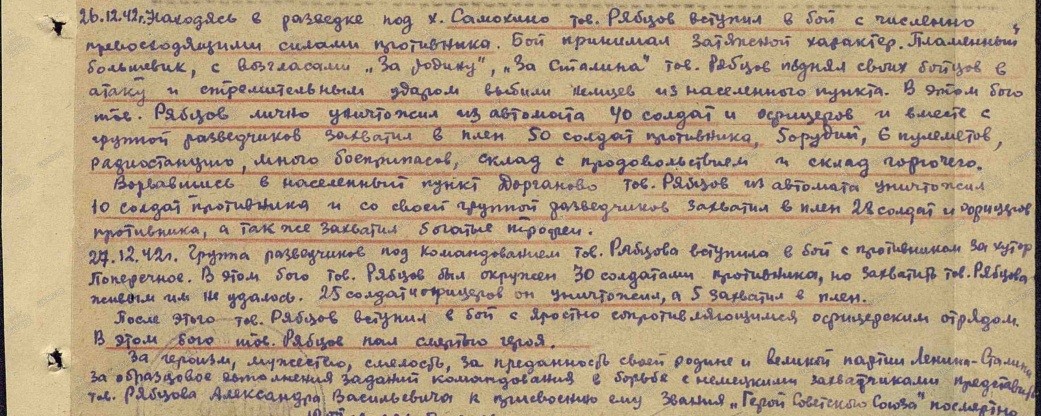 26.12.42г. Находясь в разведке под х. Самохино тов. Рябцов вступил в бой с численно
превосходящими силами противника. Бой принимал затяжной характер. Пламенный
большевик, с возгласами „За родину", „За Сталина" тов. Рябцов поднял своих бойцов в
атаку и стремительным ударом выбили немцев из населенного пункта. В этом бою
тов. Рябцов лично уничтожил из автомата 40 солдат и офицеров и вместе с
группой разведчиков захватил в плен 50 солдат противника, 5 орудий, 6 пулеметов,
радиостанцию, много боеприпасов, склад с продовольствием и склад горючего.
Ворвавшись в населенный пункт Дорганово тов. Рябцов из автомата уничтожил
10 солдат противника и со своей группой разведчиков захватил в плен 28 солдат и офицеров
противника, а так же захватил богатые трофеи.
27.12.42г. Группа разведчиков под командованием тов. Рябцова вступила в бой с противником за хутор
Поперечное. В этом бою тов. Рябцов был окружен 30 солдатами противника, но захватить тов. Рябцова
живым им не удалось. 25 солдат и офицеров он уничтожил, а 5 захватил в плен.
После этого тов. Рябцов вступил в бой с яростно сопротивляющимся офицерским отрядом.
В этом бою тов. Рябцов пал смертью героя.
За героизм, мужество, смелость, за преданность своей родине и великой партии Ленина-Сталина
за образцовое выполнения заданий командования в борьбе с немецкими захватчиками
тов. Рябцова Александра Васильевича к присвоению ему звания „Герой Советского Союза" посмертно